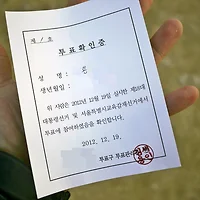 제 / 호
투 표 확 인 증
성 명 :
생년월일 :
위 사람은 2012년 12월 19일 실시한 제18대
대통령선거 및 서울특별시교육감재선거에서
투표에 참여하였음을 확인합니다.
2012. 12. 19.
투표구 투표관리관